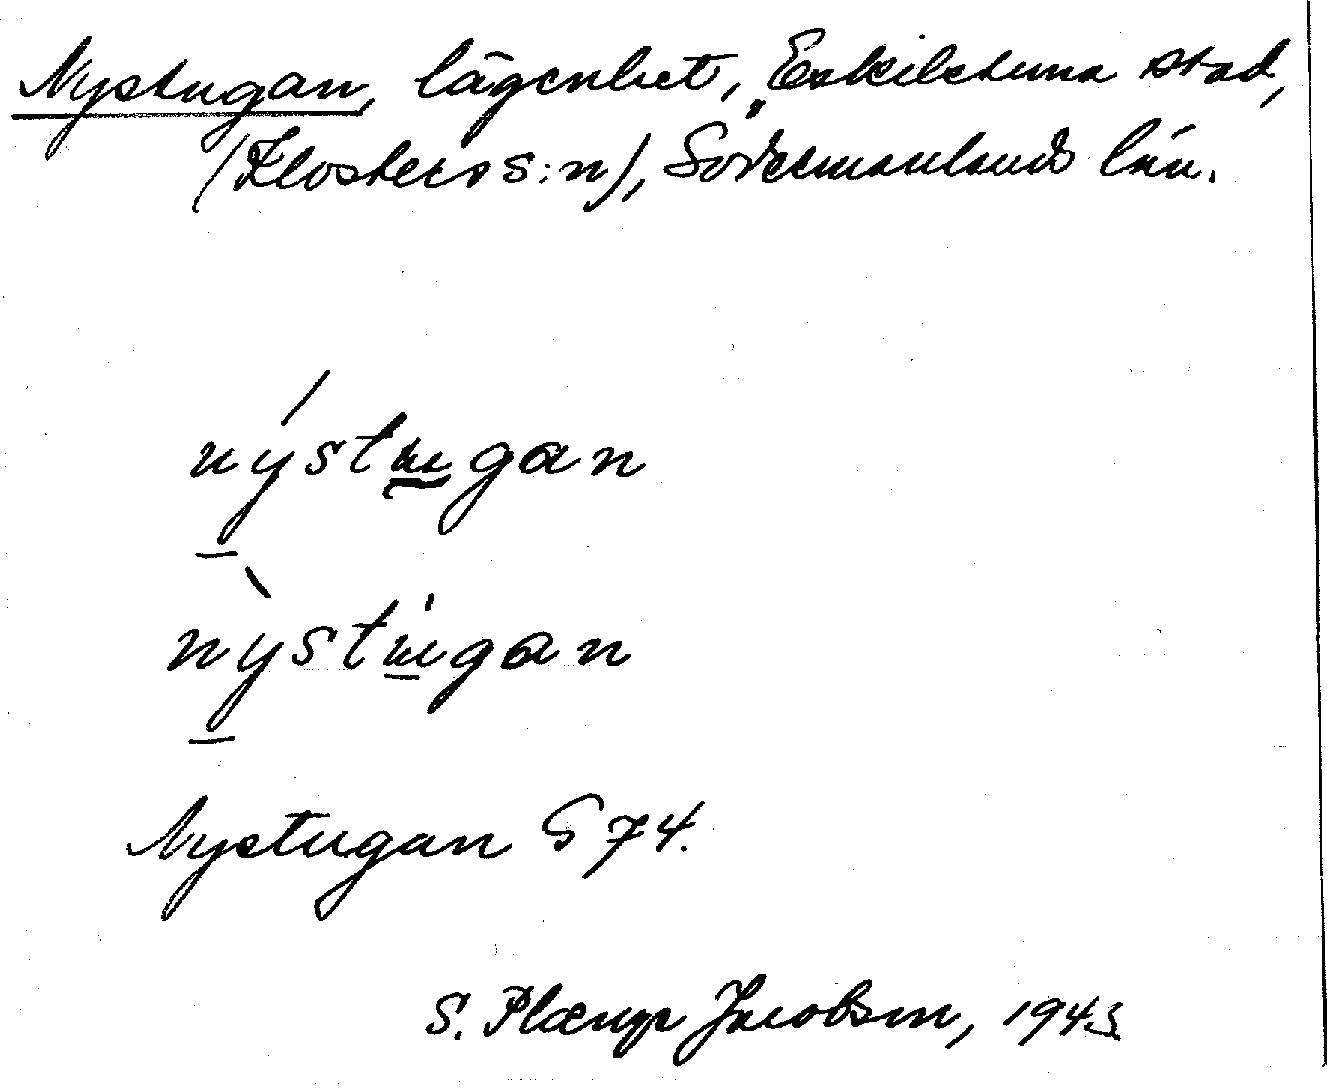 Nystugan, lägenhet, Eskilstuna stad,
(Klosters s:n), Södermanlands län.
nýstu̲gan
nỳstu̲gan
Nystugan G 74.
S. Plænge Jacobson, 1943